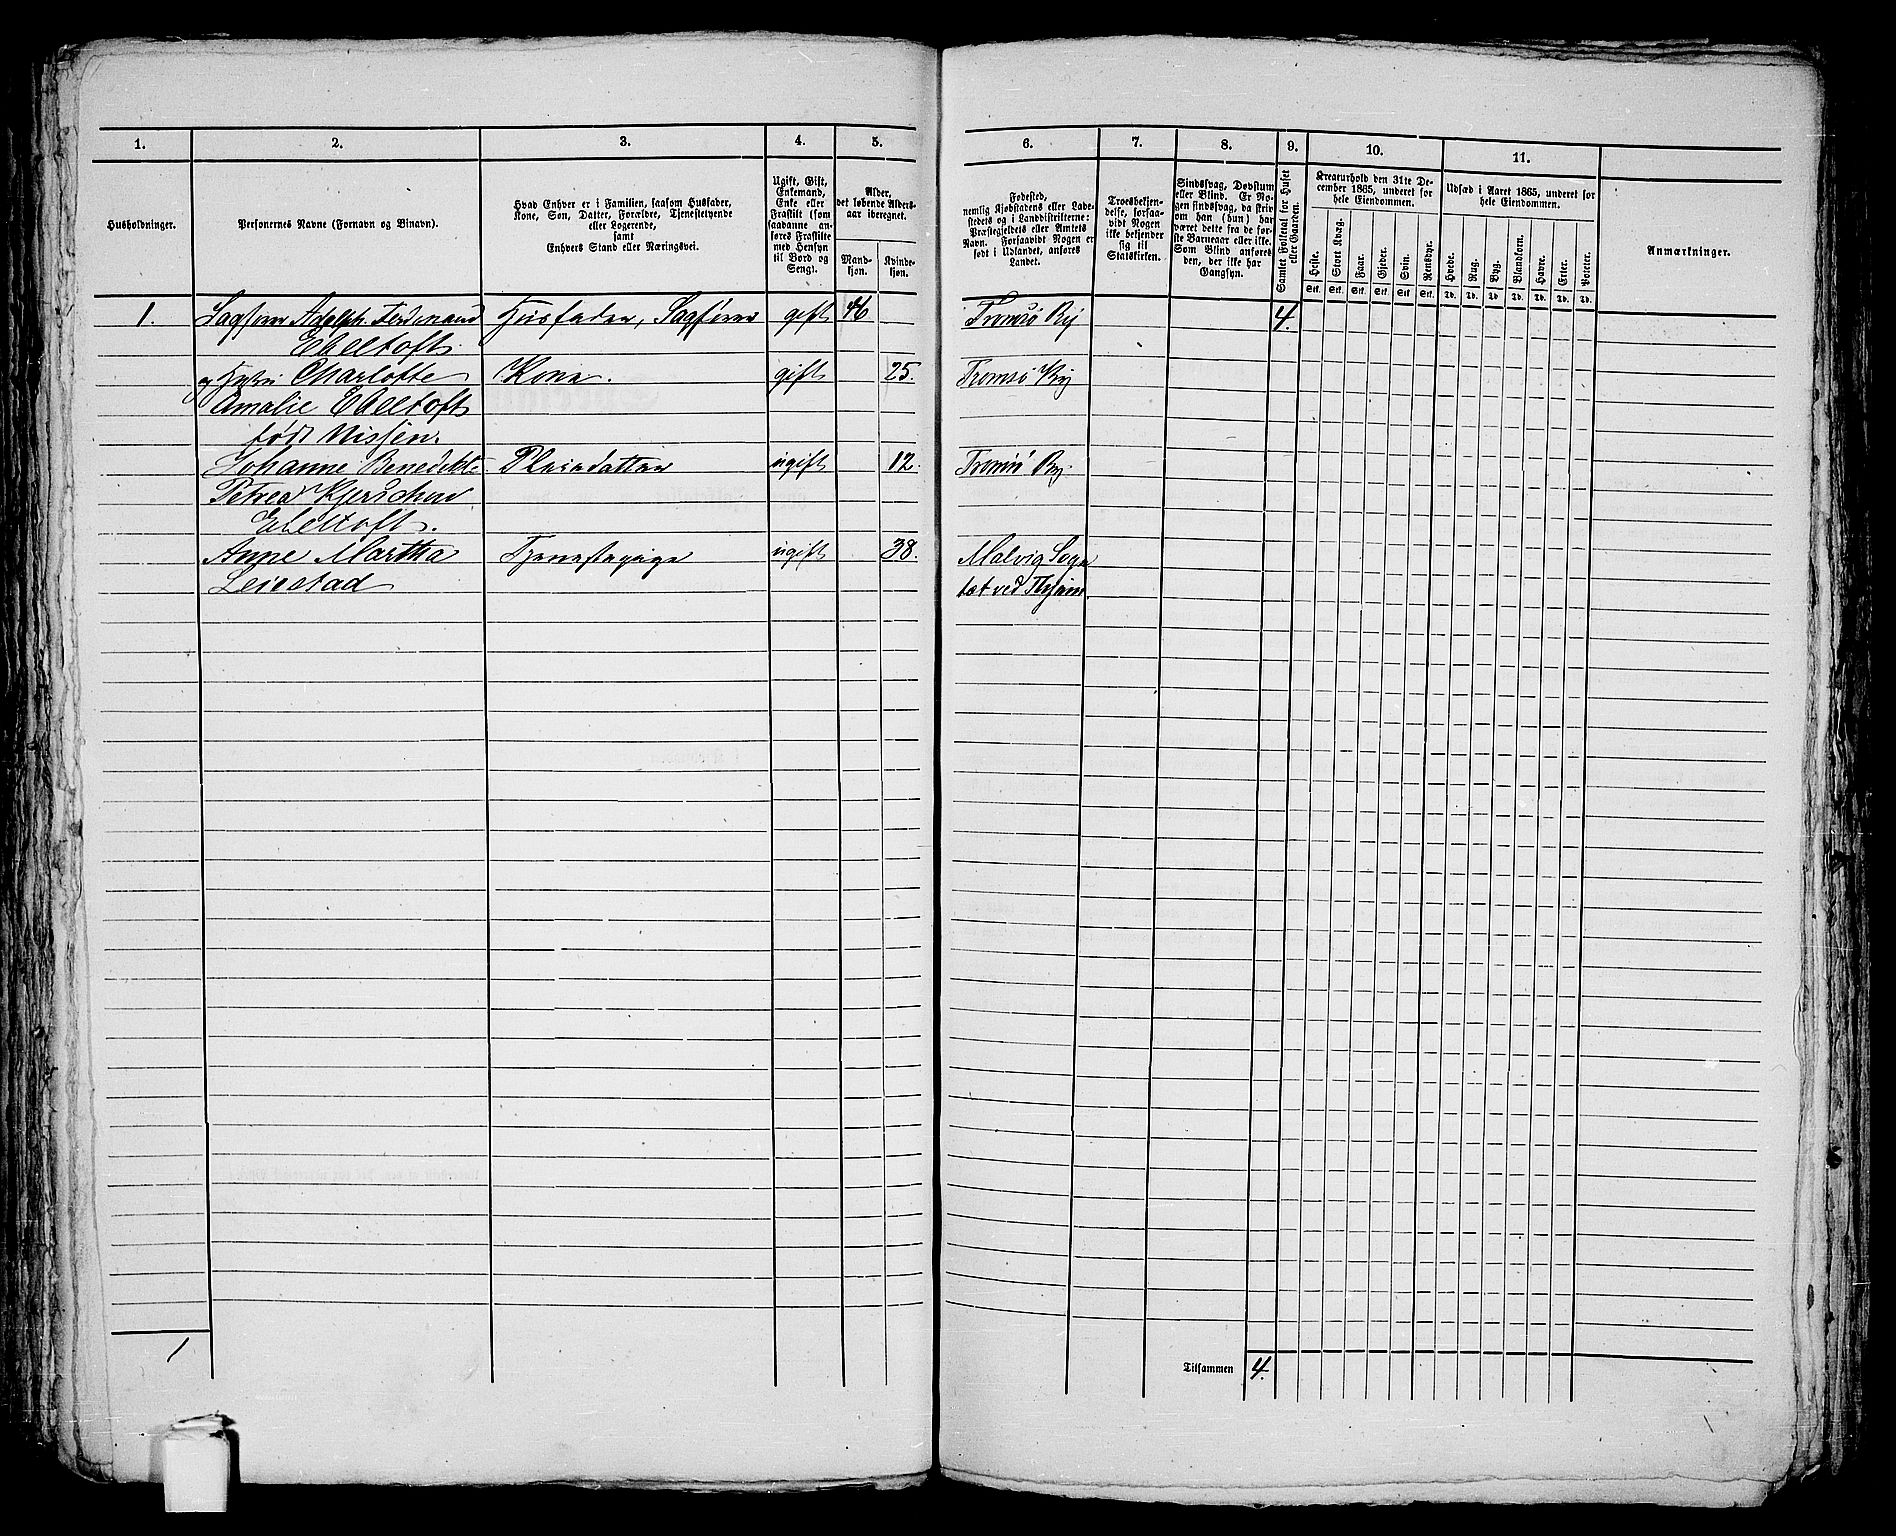 1. 2. 3. 4. 5. 6. 7. 8. 9. 10. 11.
Husholdninger.
Personernes Navne (Fornavn og Binavn).
Hvad Enhver er i Familien, saasom Husfader,
Kone, Søn, Datter, Forældre, Tjenestetyende
eller Logerende,
samt
Enhvers Stand eller Næringsvei.
Ugift, Gift,
Enkemand,
Enke eller
Fraskilt (som
saadanne an-
føres Fraskilte
med Hensyn
til Bord og
Seng).
Alder,
det løbende Alders-
aar iberegnet.
Mand-
kjøn.
Kvinde-
kjøn.
Fødested,
nemlig Kjøbstadens eller Lade-
stedets og i Landdistrikterne:
Præstegjeldets eller Amtets
Navn. Forsaavidt Nogen er
født i Udlandet, anføres
Landet.
Troesbekjen-
delse, forsaa-
vidt Nogen
ikke bekjender
sig til
Statskirken.
Sindssvag, Døvstum
eller Blind. Er No-
gen sindssvag, da skriv
om han (hun) har
været dette fra de før-
ste Barneaar eller ikke.
Som Blind anføres
den, der ikke har
Gangsyn.
Samlet Folketal for Huset
eller Gaarden.
Kreaturhold den 31te De-
cember 1865, underet for
hele Eiendommen.
Heste. Stort Kvæg. Faar. Gjeder. Svin. Rensdyr.
Stk. Stk. Stk. Stk. Stk. Stk.
Udsæd i Aaret 1865, underet for
hele Eiendommen.
Hvede. Rug. Byg. Blandkorn. Havre. Erter. Poteter.
Td. Td. Td. Td. Td. Td. Td.
Anmærkninger.
1. Sagfører Adolph Ferdinand Husfader, Sagfører gift 46 Tromsø By 4.
Ebeltoft
og Hustru Charlotte Kone. gift 25. Tromsø By
Amalie Ebeltoft
født Nissen.
Johanne Benedikte Pleiedatter ugift 12. Tromsø By.
Petrea Kjerschow
Ebeltoft.
Anne Martha Tjenestepige ugift 38. Malvig Sogn
Leiestad tæt ved Thjem.
1
Tilsammen 4.